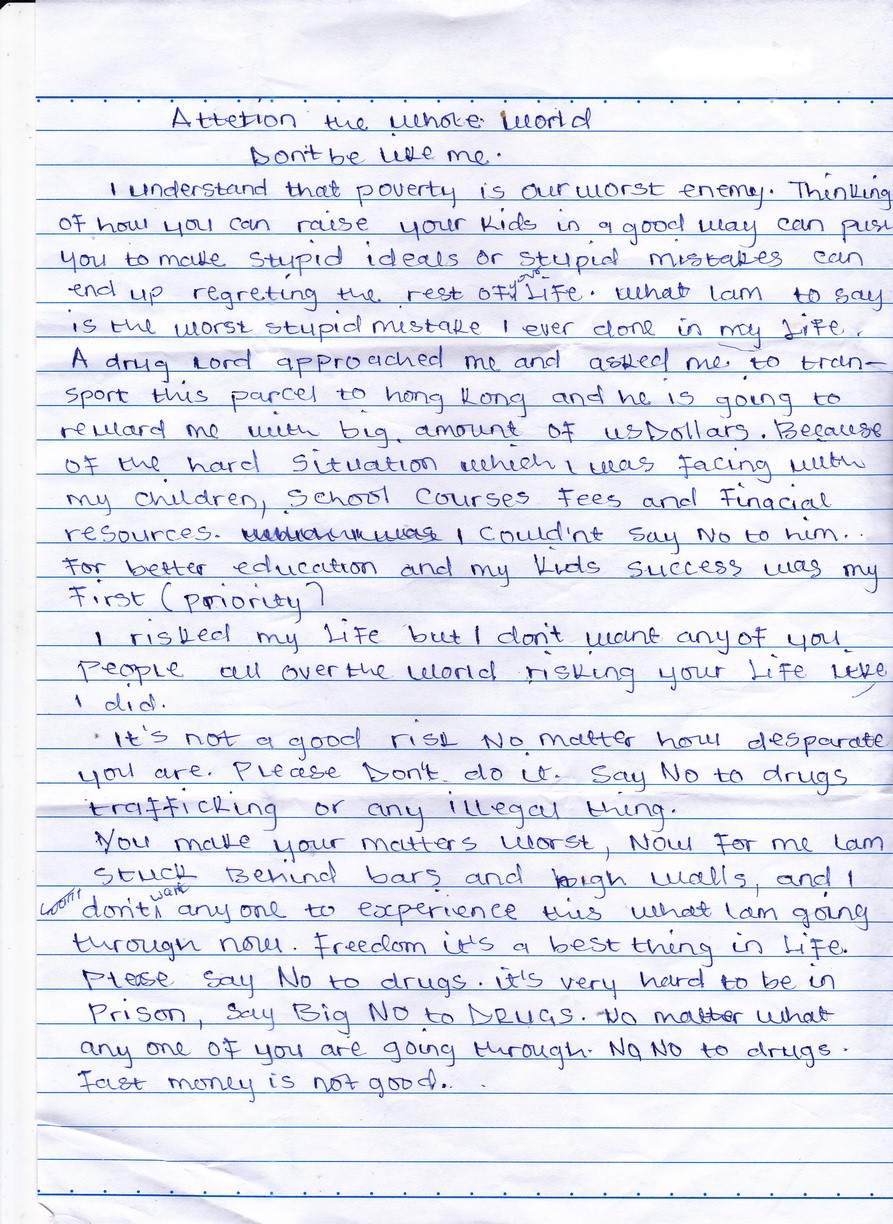 Attetion the whole world
Don't be like me.
I understand that poverty is our worst enemy. Thinking
of how you can raise your kids in a good way can push
you to make stupid ideals or stupid mistakes can
end up regreting the rest of your Life. What Iam to say
is the worst stupid mistake I ever done in my Life.
A drug Lord approached me and asked me to tran-
sport this parcel to hong Kong and he is going to
reward me with big amount of usDollars. Because
of the hard situation which I was facing with
my children, School Courses Fees and Finacial
resources. I Could'nt Say No to him..
For better education and my Kids success was my
First (priority)
I risked my Life but I don't want any of you
People all over the world risking your Life like
I did.
It's not a good risk No matter how desparate
you are. Please Don't do it. Say No to drugs
trafficking or any illegal thing.
You make your matters worst, Now For me Iam
stuck Behind bars and high walls, and I
don't want any one to experience this what Iam going
through now. Freedom it's a best thing in Life.
Please Say No to drugs. it's very hard to be in
Prison, Say Big NO to DRUGS. No matter what
any one of you are going through. No No to drugs.
Fast money is not good..